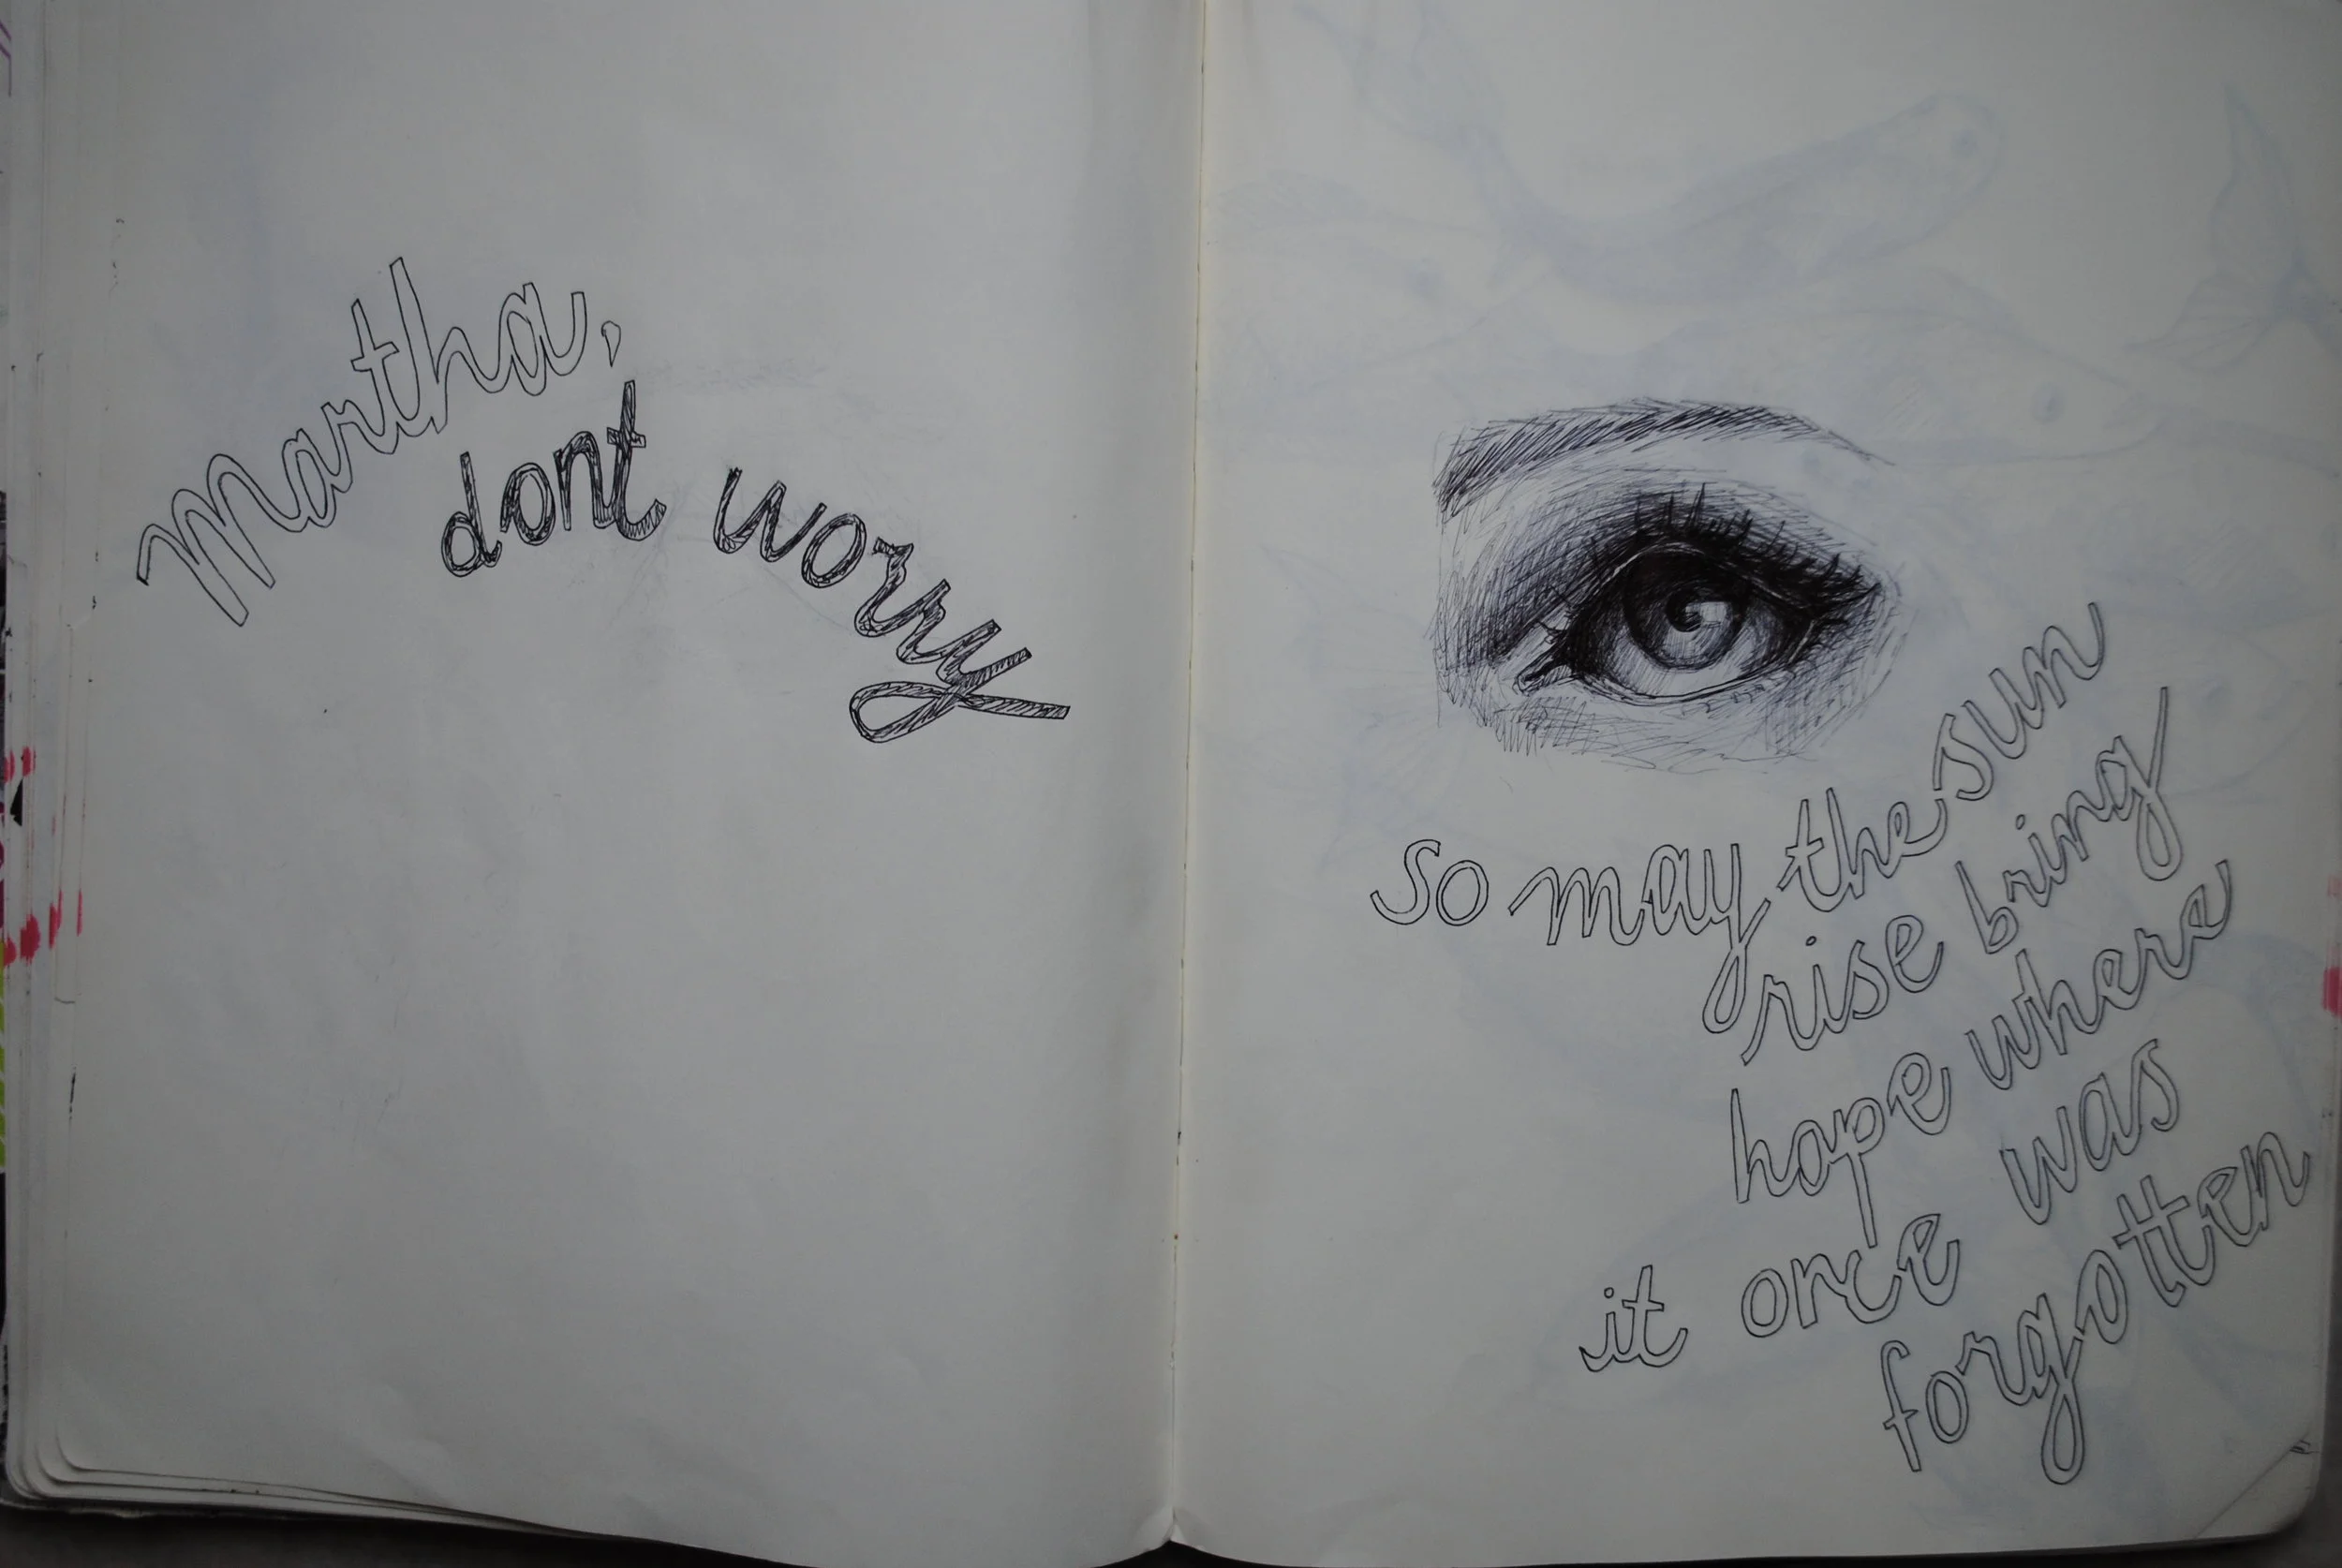 Martha,
dont worry
So may the sun
rise bring
hope where
it once was
forgotten